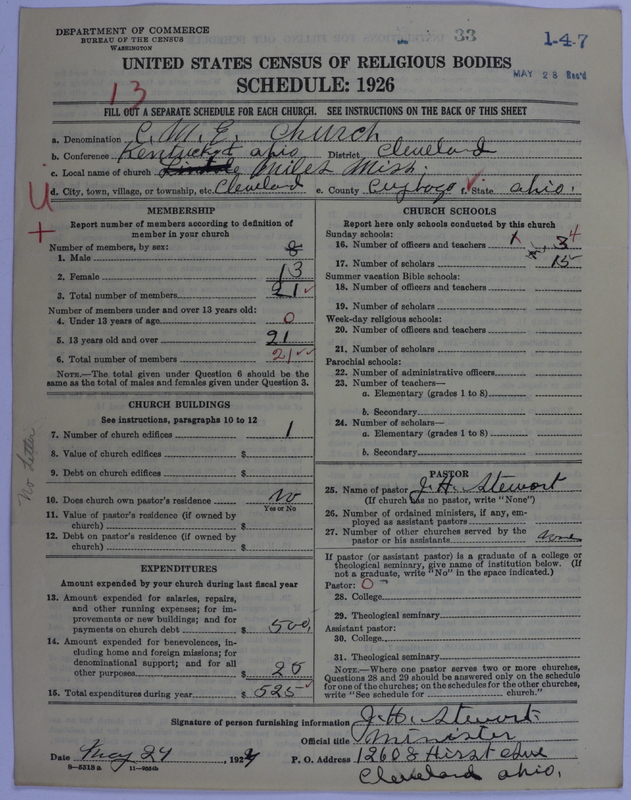 DEPARTMENT OF COMMERCE
BUREAU OF THE CENSUS
WASHINGTON
33
1-4-7
UNITED STATES CENSUS OF RELIGIOUS BODIES
MAY 28 Rec'd
SCHEDULE: 1926
13
FILL OUT A SEPARATE SCHEDULE FOR EACH CHURCH. SEE INSTRUCTIONS ON THE BACK OF THIS SHEET
a. Denomination C. M. E. Church
b. Conference Kentucky & ohio District Cleveland
c. Local name of church Miles Miss.
d. City, town, village, or township, etc. Cleveland e. County f. State ohio.
U
+
MEMBERSHIP
Report number of members according to definition of
member in your church
Number of members, by sex:
1. Male 8
2. Female 13
3. Total number of members 21 ✓
Number of members under and over 13 years old:
4. Under 13 years of age 0
5. 13 years old and over 21
6. Total number of members 21 ✓✓
NOTE.—The total given under Question 6 should be the
same as the total of males and females given under Question 3.
CHURCH BUILDINGS
See instructions, paragraphs 10 to 12
7. Number of church edifices 1
8. Value of church edifices $
9. Debt on church edifices $
10. Does church own pastor's residence No
Yes or No
11. Value of pastor's residence (if owned by
church) $
12. Debt on pastor's residence (if owned by
church) $
No Letter
EXPENDITURES
Amount expended by your church during last fiscal year
13. Amount expended for salaries, repairs,
and other running expenses; for im-
provements or new buildings; and for
payments on church debt $ 500.
14. Amount expended for benevolences, in-
cluding home and foreign missions; for
denominational support; and for all
other purposes $ 25
15. Total expenditures during year $ 525 ✓
CHURCH SCHOOLS
Report here only schools conducted by this church
Sunday schools:
16. Number of officers and teachers 3 4
17. Number of scholars 15
Summer vacation Bible schools:
18. Number of officers and teachers
19. Number of scholars
Week-day religious schools:
20. Number of officers and teachers
21. Number of scholars
Parochial schools:
22. Number of administrative officers
23. Number of teachers—
a. Elementary (grades 1 to 8)
b. Secondary
24. Number of scholars—
a. Elementary (grades 1 to 8)
b. Secondary
PASTOR
25. Name of pastor J. H. Stewort
(If church has no pastor, write "None")
26. Number of ordained ministers, if any, em-
ployed as assistant pastors
27. Number of other churches served by the
pastor or his assistants none
If pastor (or assistant pastor) is a graduate of a college or
theological seminary, give name of institution below. (If
not a graduate, write "No" in the space indicated.)
Pastor: 0
28. College
29. Theological seminary
Assistant pastor:
30. College
31. Theological seminary
NOTE.—Where one pastor serves two or more churches,
Questions 28 and 29 should be answered only on the schedule
for one of the churches; on the schedules for the other churches,
write "See schedule for church."
Signature of person furnishing information J. H. Stewort.
Official title Minister
Date May 24, 192 P. O. Address 12608 Hirst ave
8—5518 a 11—9554b
Cleveland ohio.